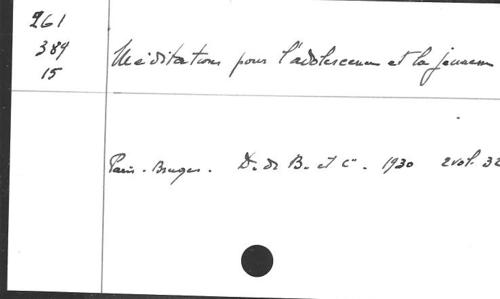 261
389
15
Méditations pour l'adolescence et la jeunesse
Paris-Bruges. D. de B. et Cie. 1930 2 vol. 32